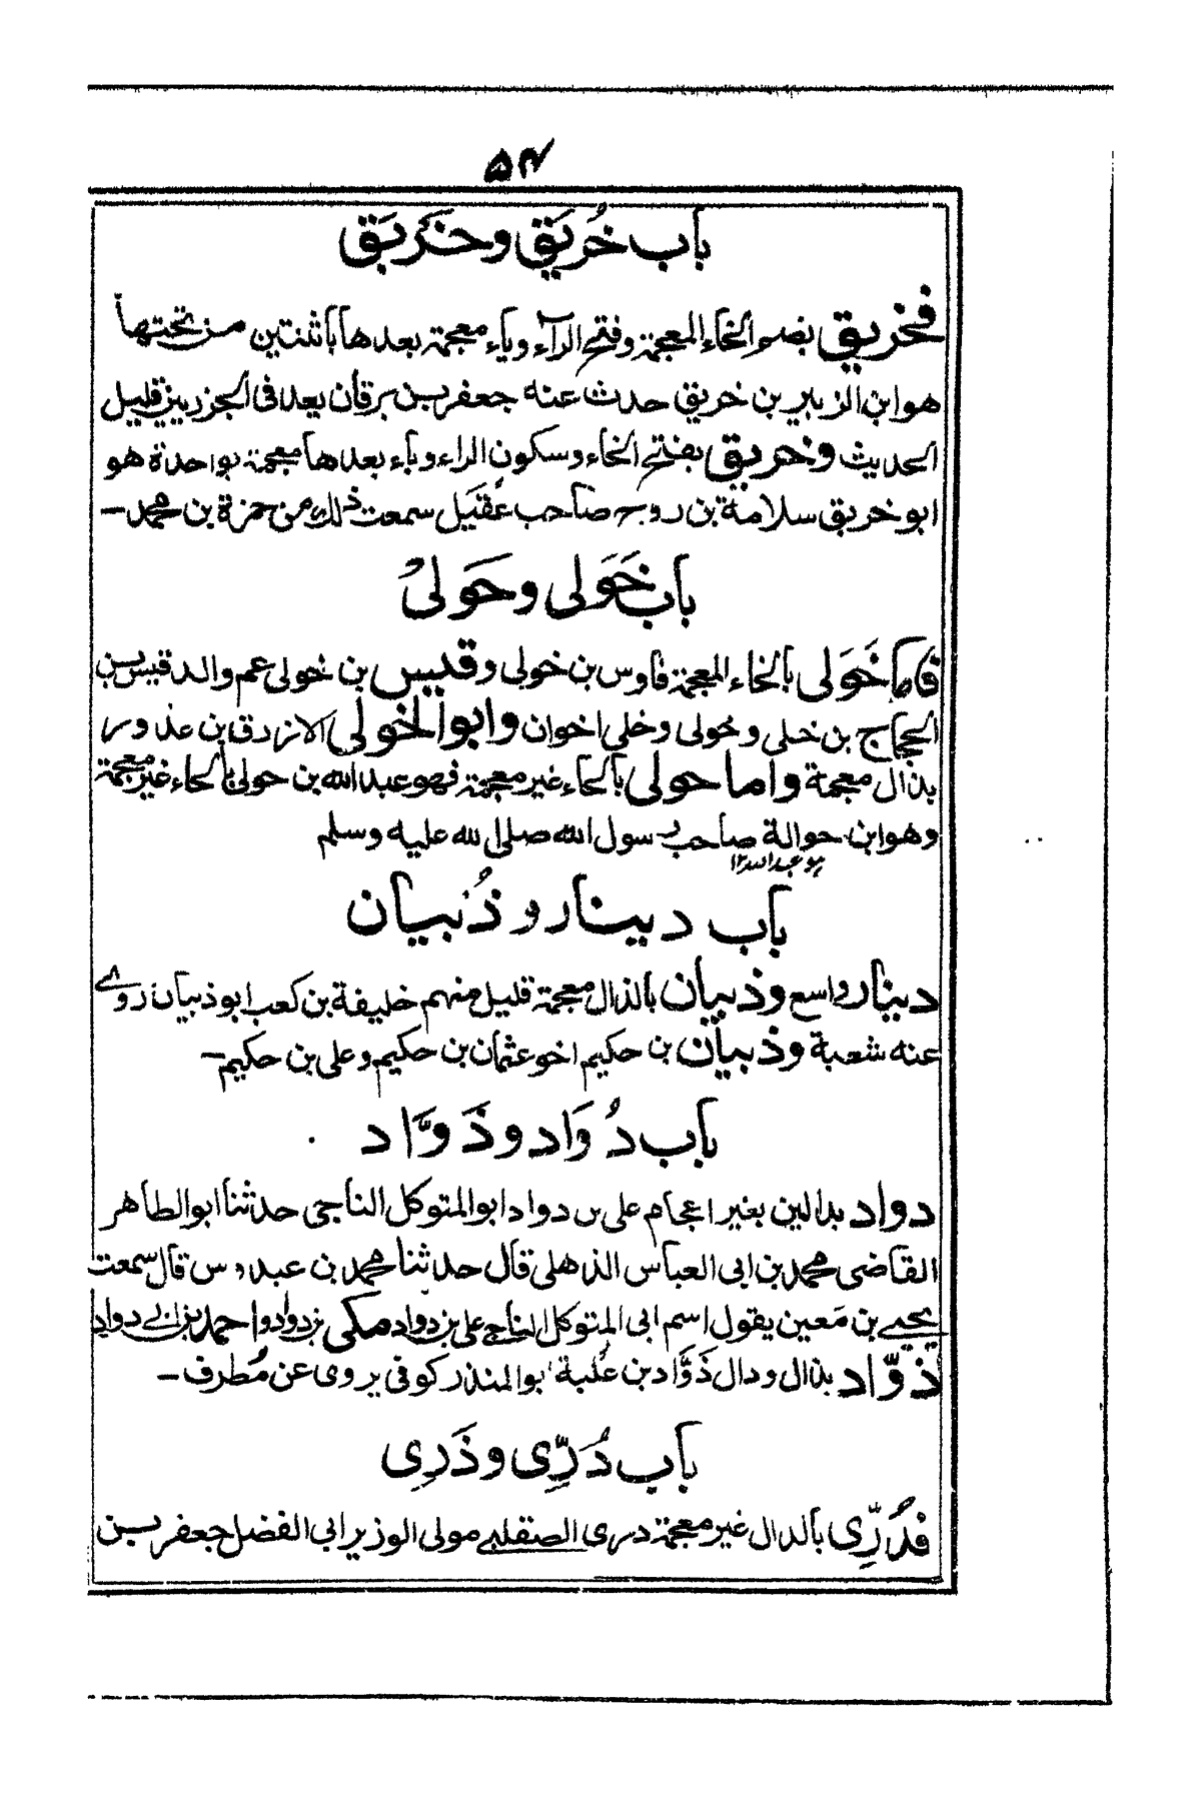 ۵۴
باب خُرَيق وخَرْبَق
فخريق بضم الخاء المعجمة وفتح الراء وياء معجمة بعدها باثنتين من تحتها
هو ابن الزبير بن خريق حدث عنه جعفر بن برقان يعد فى الجزريين قليل
الحديث وخربق بفتح الخاء وسكون الراء وباء بعدها معجمة بواحدة هو
ابو خربق سلامة بن روح صاحب عُقَيل سمعت ذلك من حمزة بن محمد -
باب خَوَلى وحَوَلىُ
فاما خَوَلى بالخاء المعجمة فاوس بن خولى وقيس بن خولى عم والد قيس بن
الحجاج بن خلى وخولى وخلى اخوان وابو الخولى الازرق بن عذور
بذال معجمة واما حولى بالحاء غير معجمة فهو عبد الله بن حولى بالحاء غير معجمة
وهو ابن حوالة صاحب رسول الله صلى الله عليه وسلم
هو عبد الله ١٢
باب دينار وذُبيان
دينار واسع وذبيان بالذال معجمة قليل منهم خليفة بن كعب ابو ذبيان روے
عنه شعبة وذبيان بن حكيم اخو عثمان بن حكيم وعلى بن حكيم -
باب دُوَاد وذَوَّاد
دواد بدالين بغير اعجام على بن دواد ابو المتوكل الناجى حدثنا ابو الطاهر
القاضى محمد بن ابى العباس الذهلى قال حدثنا محمد بن عبدوس قال سمعت
يحيے بن مَعين يقول اسم ابى المتوكل الناجى على بن دواد مكى بن دواد واحمد بن ابى دواد
ذوّاد بذال ودال ذَوَّاد بن عُلبة ابو المنذر كوفى يروى عن مُطرف -
باب دُرِّى وذَرِى
فدُرِّى بالدال غير معجمة درى الصقلبے مولى الوزير ابى الفضل جعفر بن